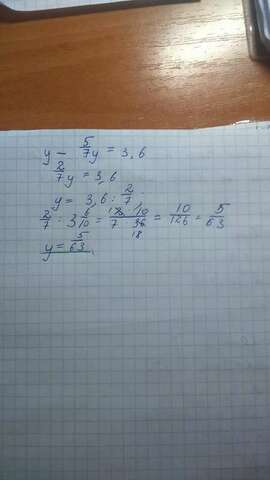 y - 5/7 y = 3,6
2/7 y = 3,6
y = 3,6 : 2/7
2/7 : 3 6/10 = 1 2 · 10 / 7 · 36 18 = 10/126 = 5/63
y = 5/63